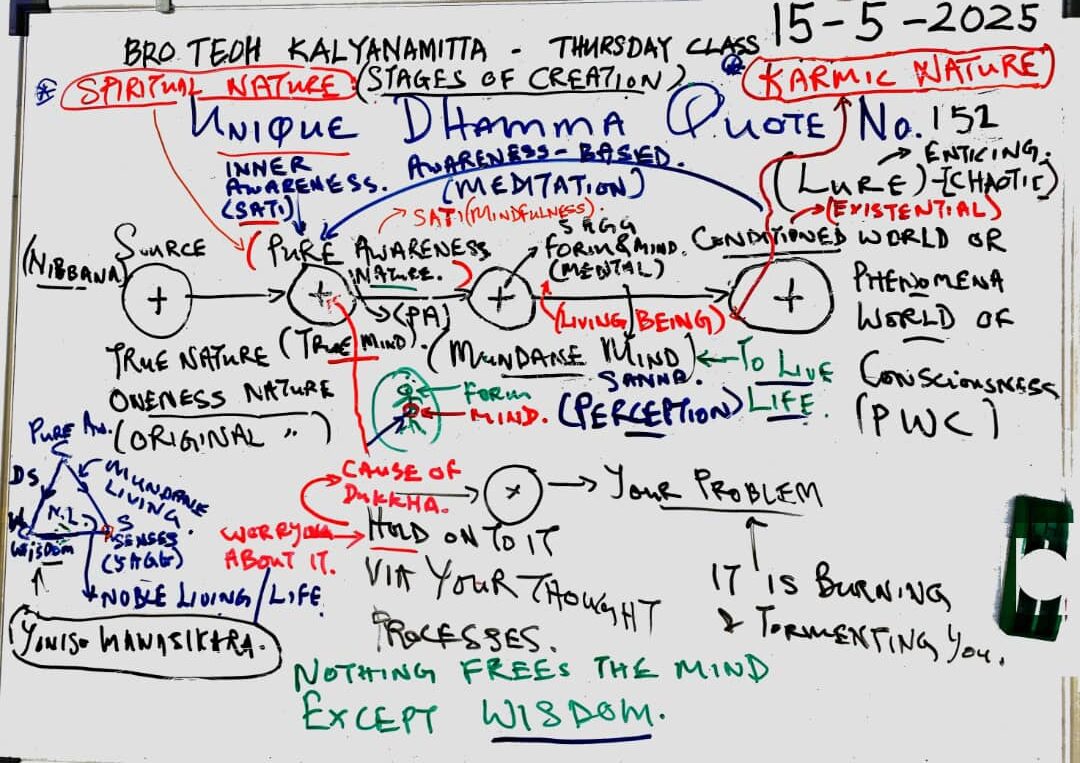 15-5-2025
BRO TEOH KALYANAMITTA - THURSDAY CLASS
SPIRITUAL NATURE (STAGES OF CREATION)
KARMIC NATURE
UNIQUE DHAMMA QUOTE No. 152
INNER
AWARENESS.
(SATI)
AWARENESS-BASED.
(MEDITATION)
ENTICING.
(LURE)-(CHAOTIC)
(EXISTENTIAL)
SATI (MINDFULNESS).
(NIBBANA)
SOURCE
+
(PURE AWARENESS
NATURE.)
+
(PA)
5AGG
FORM & MIND.
(MENTAL)
+
(LIVING BEING)
CONDITIONED WORLD OR
PHENOMENA
WORLD OF
CONSCIOUSNESS
(PWC)
+
TRUE NATURE
ONENESS NATURE
(ORIGINAL ")
(TRUE MIND).
(MUNDANE MIND)
SANNA.
(PERCEPTION)
TO LIVE
LIFE.
FORM
MIND.
PURE AW.
DS
MUNDANE
LIVING.
N.L.
W
WISDOM
S
SENSES
(5AGG)
NOBLE LIVING/LIFE
YONISO MANASIKARA.
CAUSE OF
DUKKHA.
x
YOUR PROBLEM
WORRYING
ABOUT IT.
HOLD ON TO IT
VIA YOUR THOUGHT
PROCESSES.
IT IS BURNING
& TORMENTING YOU.
NOTHING FREES THE MIND
EXCEPT WISDOM.